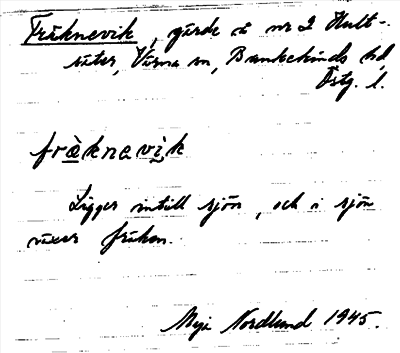 Fräknevik, gärde å nr 2 Hult-
säter, Värna sn, Bankekinds hd
Östg. l.
fräknevik
Ligger intill sjön, och i sjön
växer fräken.
Nordlund 1945.